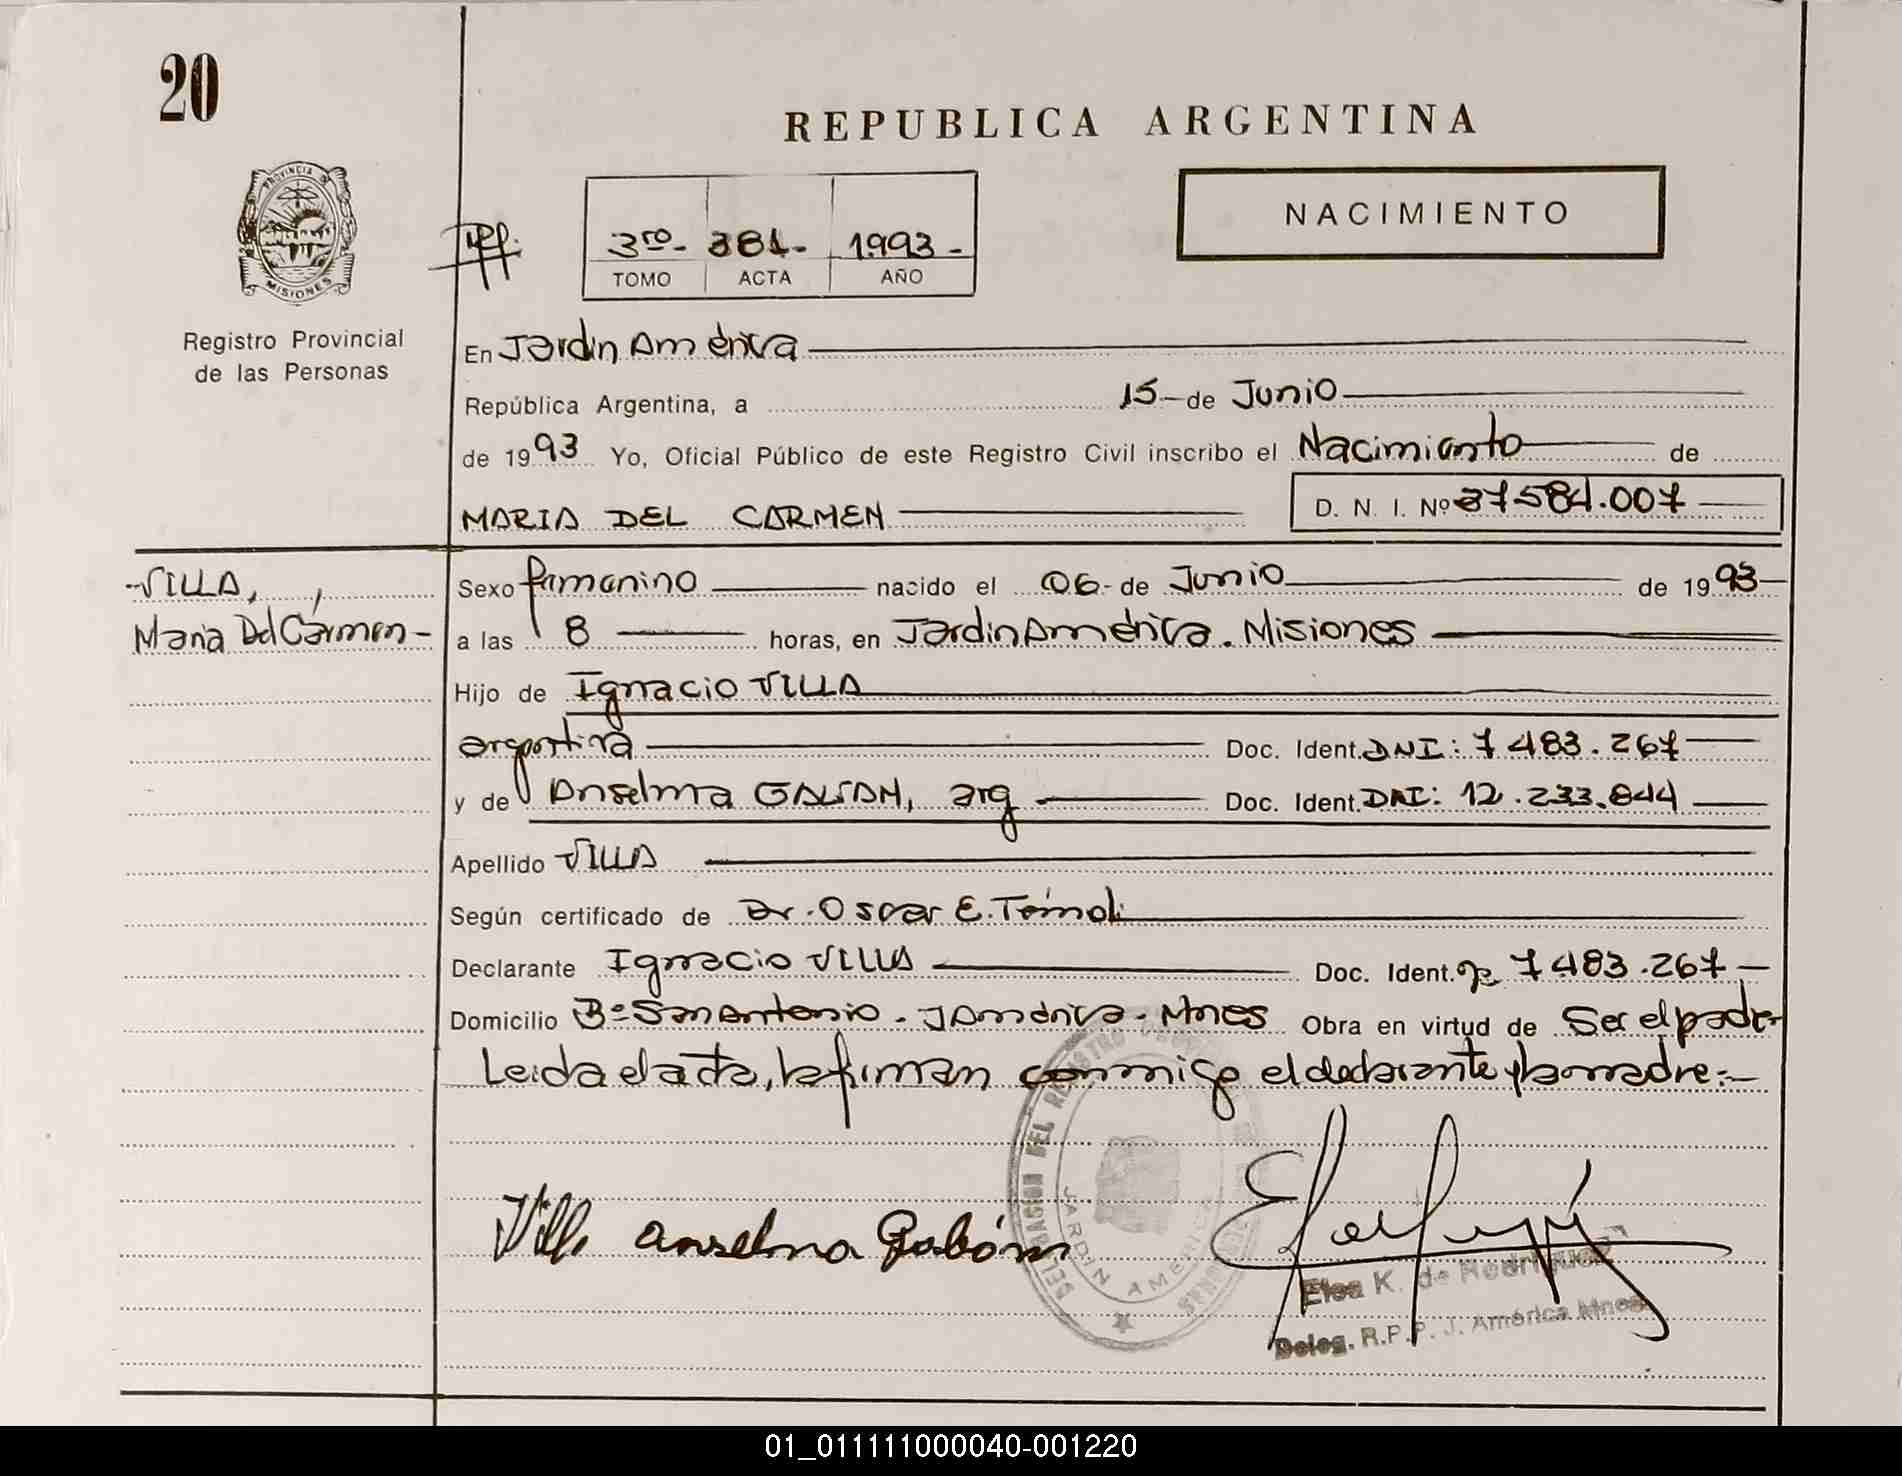 20
REPUBLICA ARGENTINA
NACIMIENTO
PROVINCIA DE
MISIONES
3ro- 381- 1993-
TOMO ACTA AÑO
Registro Provincial
de las Personas
En Jardin América
República Argentina, a 15 de Junio
de 1993 Yo, Oficial Público de este Registro Civil inscribo el Nacimiento de
MARIA DEL CARMEN D. N. I. Nº 37584.007
VILLA,
Maria Del Carmen-
Sexo femenino nacido el 06 de Junio de 1993
a las 8 horas, en Jardin América. Misiones
Hijo de Ignacio VILLA
argentina Doc. Ident. DNI: 7483.267
y de Anselma GALVAN, arg Doc. Ident. DNI: 12.233.844
Apellido VILLA
Según certificado de Dr. Oscar E.
Declarante Ignacio VILLA Doc. Ident. 7483.267
Domicilio Bº San Antonio. J América. Mnes Obra en virtud de Ser el padre
Leida el acta, la firman conmigo el declarante y la madre:-
DELEGACION DEL REGISTRO
JARDIN AMERICA
Vill Anselma Galván
Elsa K. de Rodriguez
Deleg. R.P.P. J. América Mnes
01_011111000040-001220